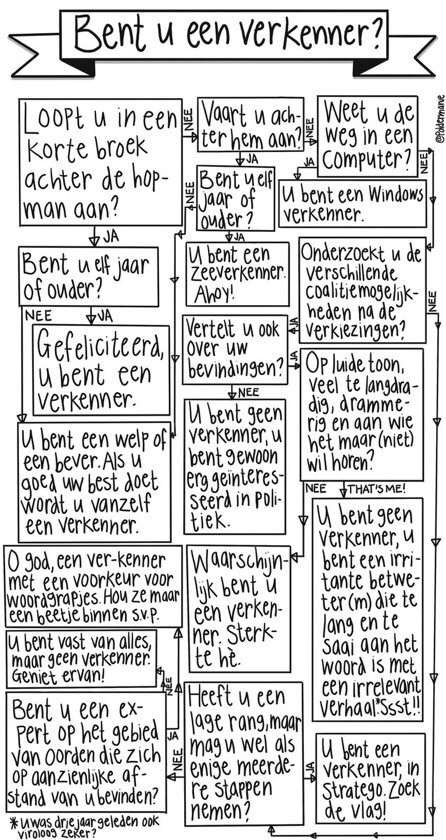 Bent u een verkenner?
@poldermanie
Loopt u in een
korte broek
achter de hop-
man aan?
NEE
Vaart u ach-
ter hem aan?
NEE
Weet u de
weg in een
computer?
NEE
JA
JA
Bent u elf
jaar of
ouder?
NEE
U bent een Windows
verkenner.
JA
JA
Bent u elf jaar
of ouder?
U bent een
zeeverkenner.
Ahoy!
Onderzoekt u de
verschillende
coalitiemogelijk-
heden na de
verkiezingen?
NEE
NEE
JA
JA
Gefeliciteerd,
u bent een
verkenner.
Vertelt u ook
over uw
bevindingen?
JA
NEE
Op luide toon,
veel te langdra-
dig, dramme-
rig en aan wie
het maar (niet)
wil horen?
U bent een welp of
een bever. Als u
goed uw best doet
wordt u vanzelf
een verkenner.
U bent geen
verkenner, u
bent gewoon
erg geïnteres-
seerd in poli-
tiek.
NEE
THAT'S ME!
U bent geen
verkenner, u
bent een irri-
tante betwe-
ter (m) die te
lang en te
saai aan het
woord is met
een irrelevant
verhaal.* Ssst!!
O god, een ver-kenner
met een voorkeur voor
woordgrapjes. Hou ze maar
een beetje binnen s.v.p.
Waarschijn-
lijk bent u
een verken-
ner. Sterk-
te hè.
U bent vast van alles,
maar geen verkenner.
Geniet ervan!
NEE
JA
Bent u een ex-
pert op het gebied
van oorden die zich
op aanzienlijke af-
stand van u bevinden?
NEE
Heeft u een
lage rang, maar
mag u wel als
enige meerde-
re stappen
nemen?
JA
U bent een
verkenner, in
Stratego. Zoek
de vlag!
* u was drie jaar geleden ook
viroloog zeker?